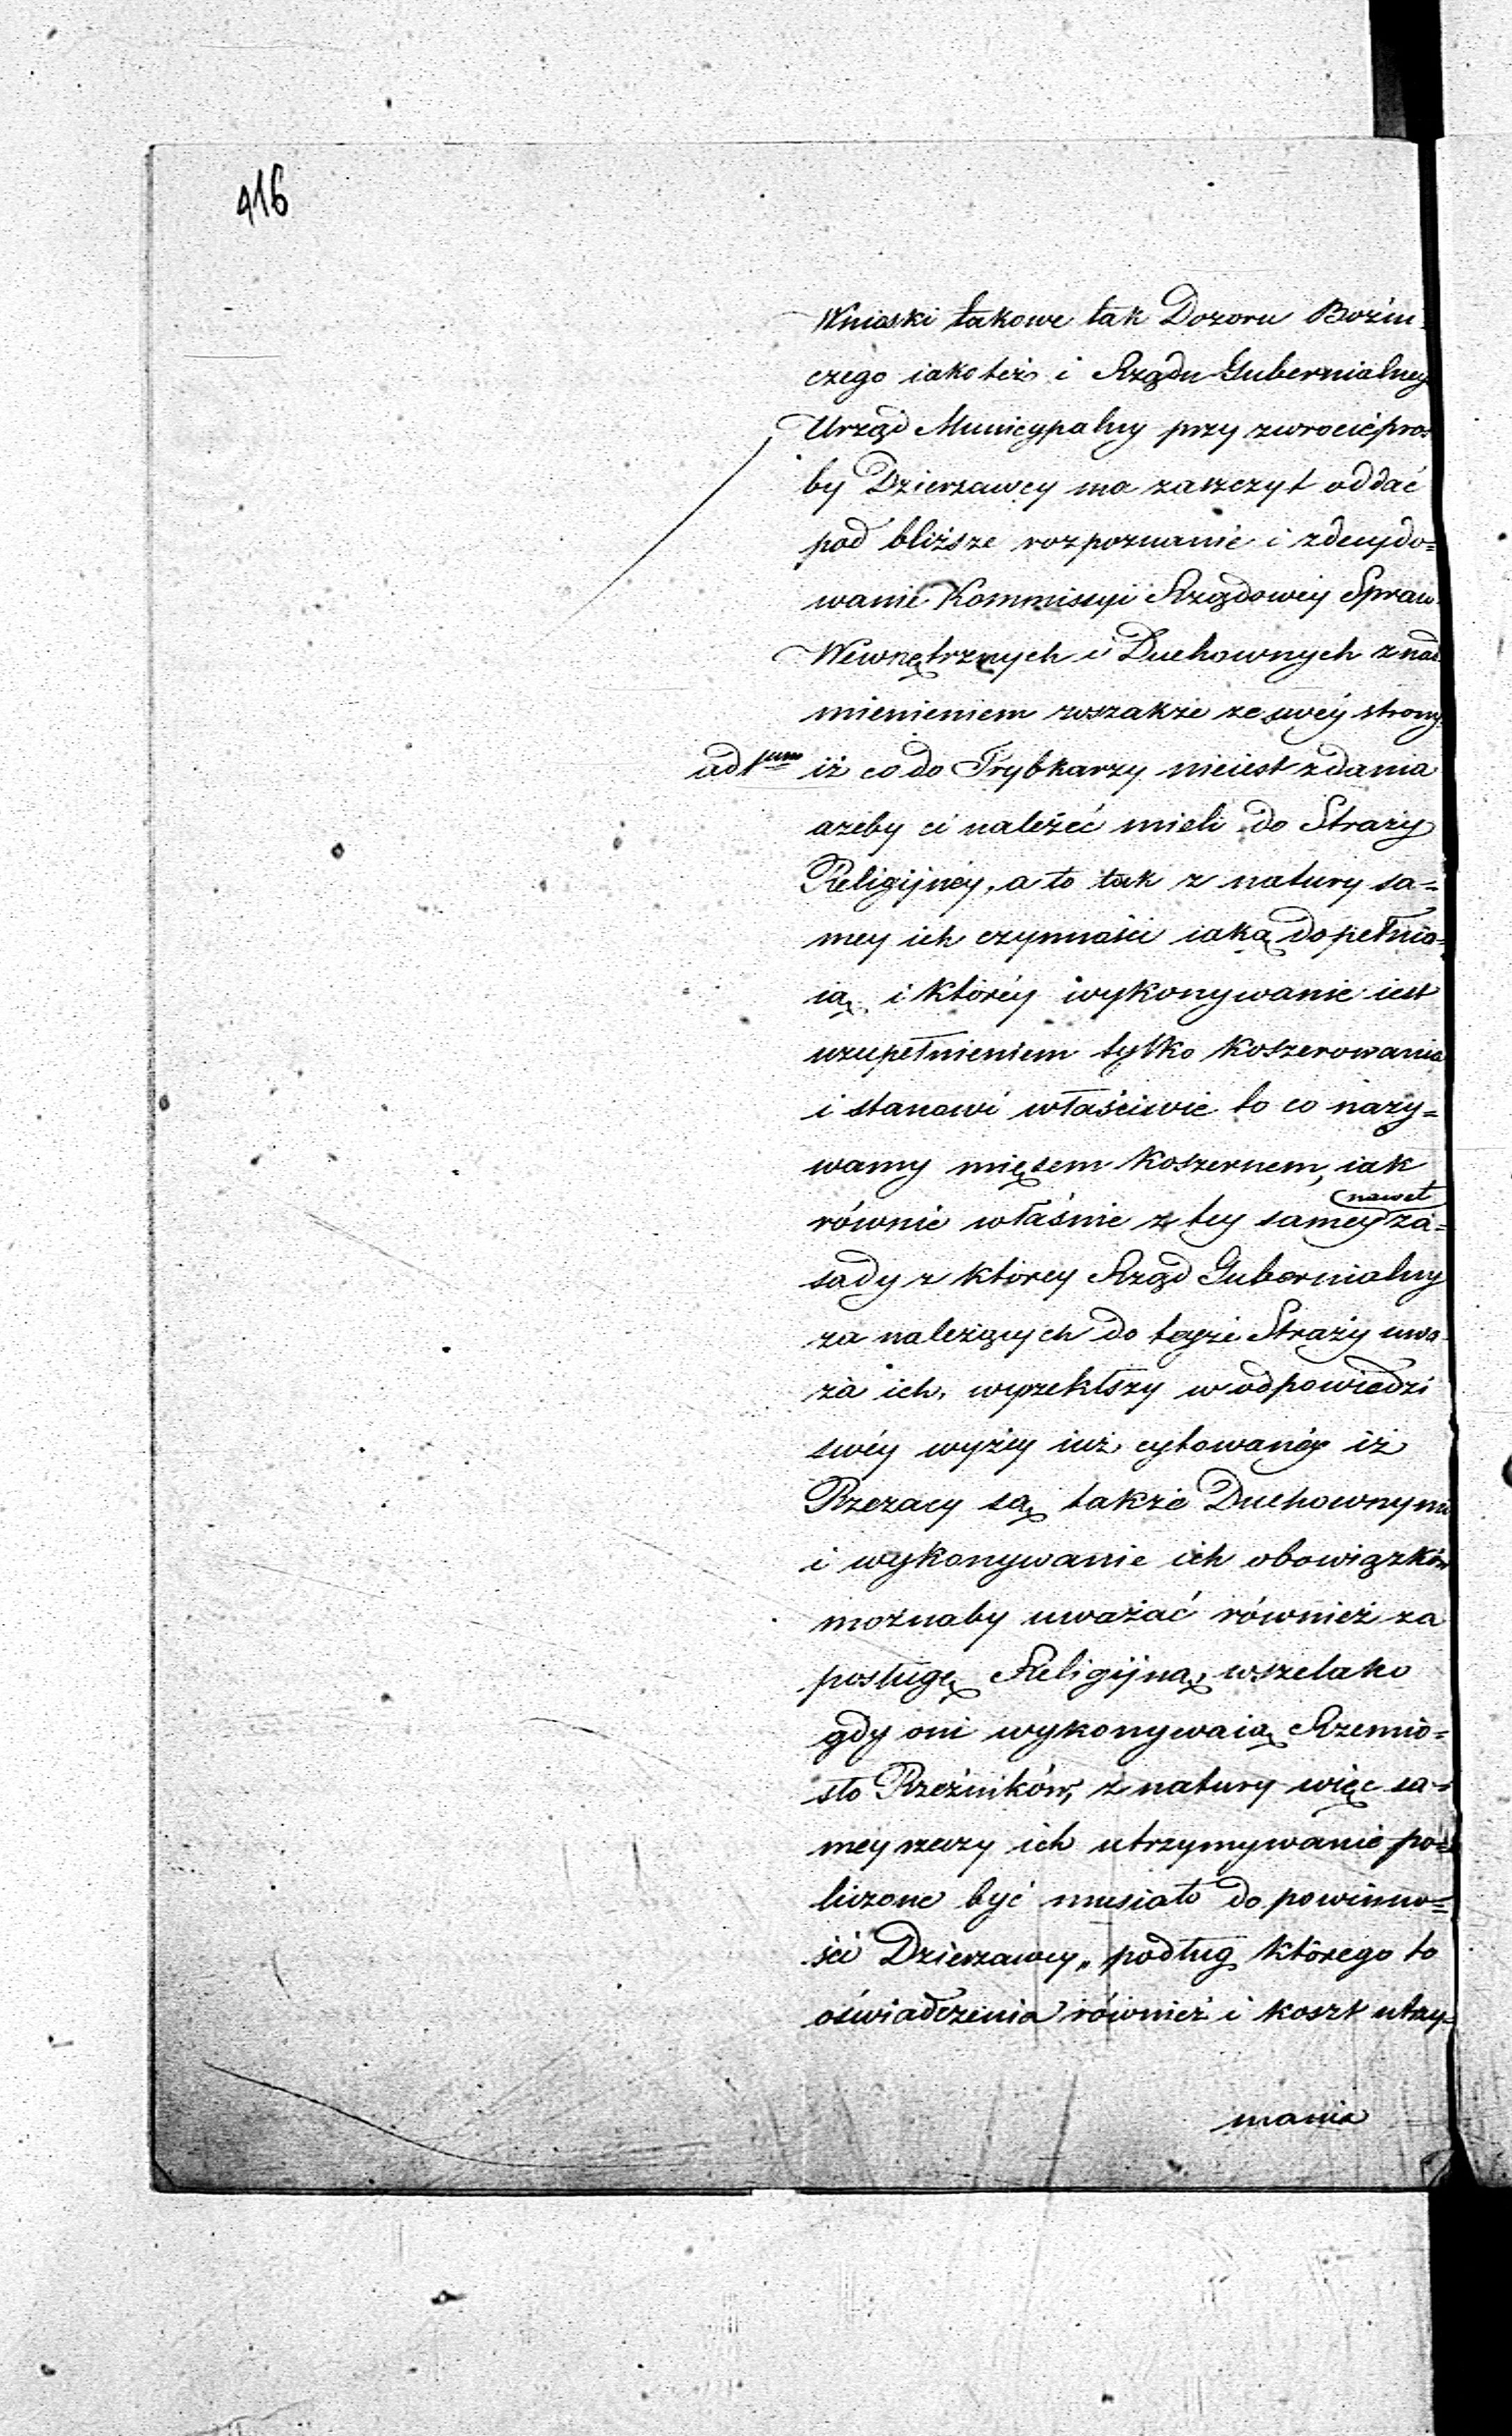 416
Wnioski takowe tak Dozoru Bożni-
czego iako też i Rządu Gubernialney
Urząd Municypalny przy zwrocie proś-
by Dzierżawcy ma zaszczyt oddać
pod bliższe rozpoznanie i zdecydo=
wanie Kommissyi Rządowey Spraw
Wewnętrznych i Duchownych z nad
mienieniem wszakże ze swey strony
ad 1mum iż co do Trybkarzy nie iest zdania
ażeby ci należeć mieli do Straży
Religijney, a to tak z natury sa=
mey ich czynności iaką dopełnia=
ią i którey wykonywanie iest
uzupełnieniem tylko koszerowania
i stanowi właściwie to co nazy=
wamy mięsem koszernem, iak
nawet
równie właśnie z tey samey za=
sady z którey Rząd Gubernialny
za należących do teyże Straży uwa-
ża ich, wyrzekłszy w odpowiedzi
swéy wyżey iuż cytowanéy iż
Rzezacy są także Duchownymi
i wykonywanie ich obowiązków
możnaby uważać również za
posługę Religijną, wszelako
gdy oni wykonywaią Rzemio=
sło Rzeźników, z natury więc sa=
mey rzeczy ich utrzymywanie po=
liczone być musiało do powinno=
ści Dzierzawcy„ podług którego to
oświadczenia również i koszt utrzy=
mania